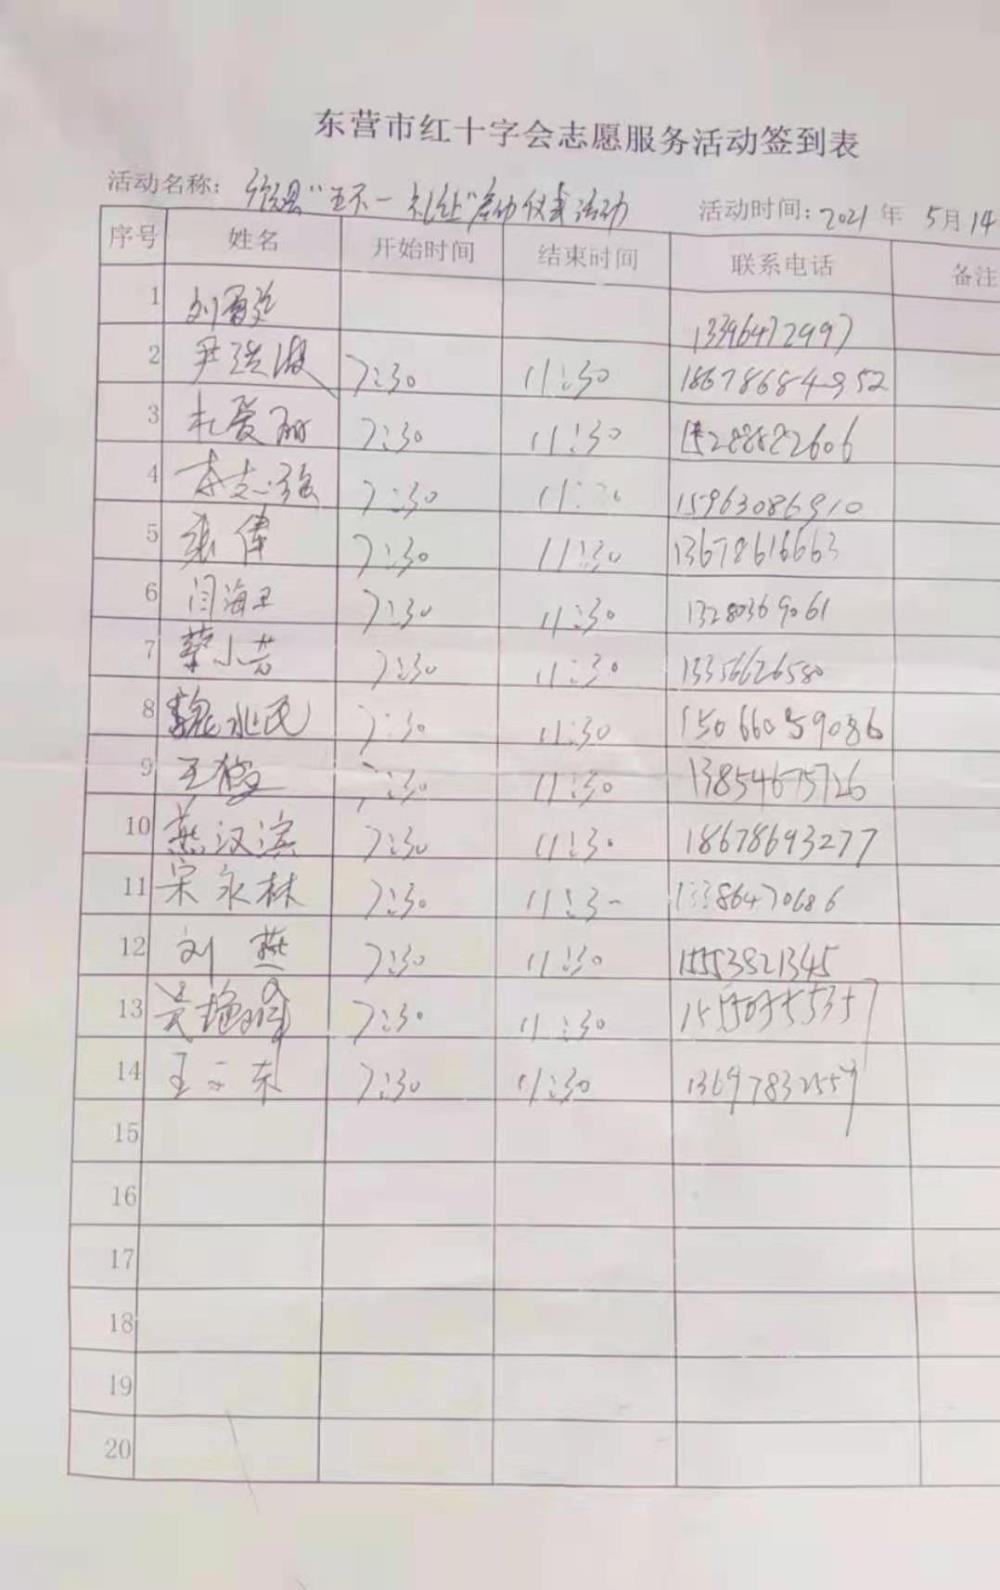 东营市红十字会志愿服务活动签到表
活动名称： "五不一礼让"启动仪式活动 活动时间：2021年 5月14
序号 姓名 开始时间 结束时间 联系电话 备注
1 刘 13396472997
2 尹 7:30 11:30 18678684952
3 杜爱丽 7:30 11:30 15288882606
4 李志强 7:30 11:30 15963086910
5 张伟 7:30 11:30 13678616663
6 闫海卫 7:30 11:30 13280369061
7 蔡小芳 7:30 11:30 13356626580
8 魏 民 7:30 11:30 15066059086
9 王 7:30 11:30 13854675726
10 燕汉滨 7:30 11:30 18678693277
11 宋永林 7:30 11:30 13386470686
12 刘燕 7:30 11:30 15553821345
13 吴艳 7:30 11:30
14 王 东 7:30 11:30 13697832559
15
16
17
18
19
20